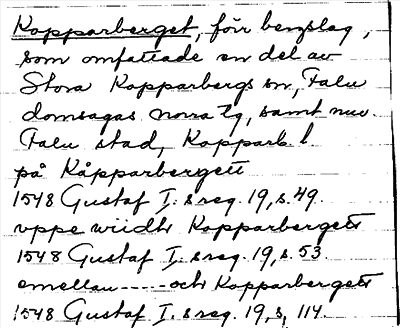 Kopparberget, förr bergslag,
som omfattade en del av
Stora Kopparbergs sn, Falu
domsagas norra tg, samt nuv.
Falu stad, Kopparb. l.
på Kåpparbergett
1548 Gustaf I:s reg. 19, s. 49.
vppe widh Kopparbergett
1548 Gustaf I:s reg. 19, s. 53.
emellan ---- och Kopparbergett
1548 Gustaf I:s reg. 19, s, 114.